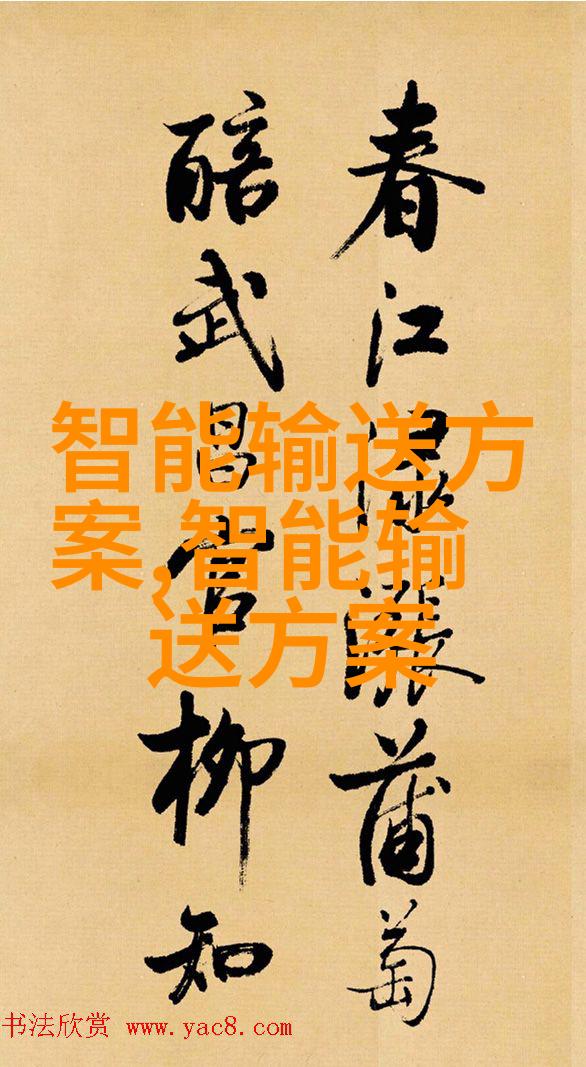 春江淥漲蒲萄
醅武昌官柳知
智能输送方
案,智能输
送方案
书法欣赏 www.yac8.com